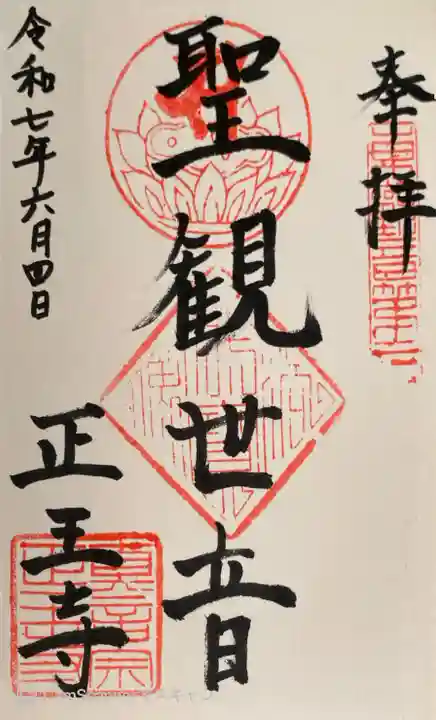 奉拝
聖観世音
正王寺
令和七年六月四日